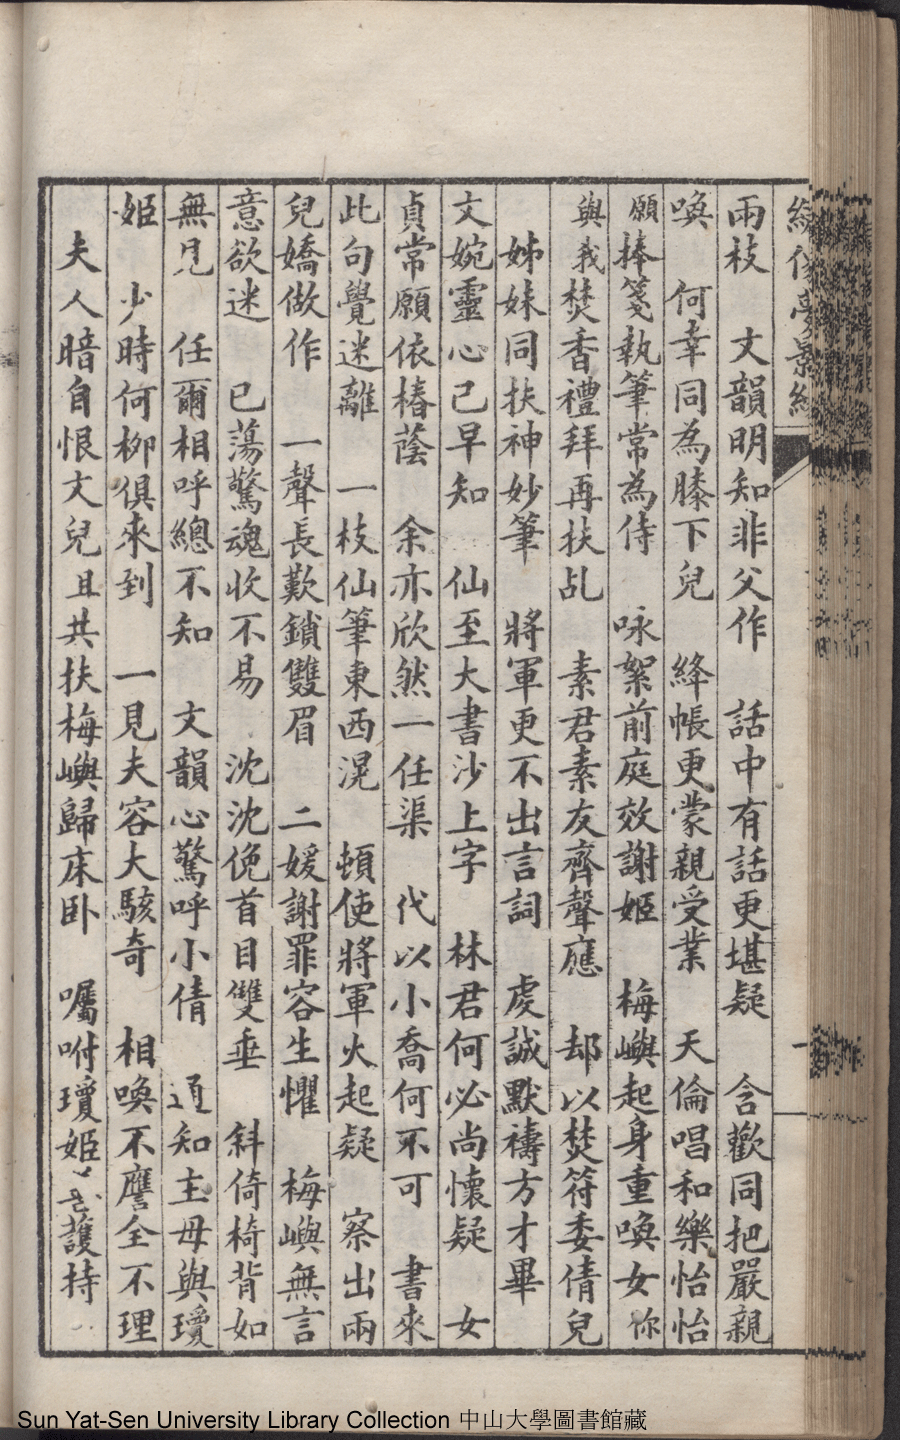 繪像夢影緣
兩枝　文韻明知非父作　話中有話更堪疑　含歡同把嚴親
喚　何幸同為膝下兒　絳帳更蒙親受業　天倫唱和樂怡怡
願捧箋執筆常為侍　咏絮前庭效謝姬　梅嶼起身重喚女　你
與我焚香禮拜再扶乩　素君素友齊聲應　却以焚符委倩兒
姊妹同扶神妙筆　將軍更不出言詞　虔誠默禱方才畢
文婉靈心已早知　仙至大書沙上字　林君何必尚懷疑　女
貞常願依椿蔭　余亦欣然一任渠　代以小喬何不可　書來
此句覺迷離　一枝仙筆東西滉　頓使將軍火起疑　察出兩
兒嬌做作　一聲長歎鎖雙眉　二媛謝罪容生懼　梅嶼無言
意欲迷　已蕩驚魂收不易　沈沈俛首目雙垂　斜倚椅背如
無見　任爾相呼總不知　文韻心驚呼小倩　通知主母與瓊
姬　少時何柳俱來到　一見夫容大駭奇　相喚不譍全不理
夫人暗自恨文兒　且共扶梅嶼歸床卧　囑咐瓊姬護持
一
Sun Yat-Sen University Library Collection 中山大學圖書館藏